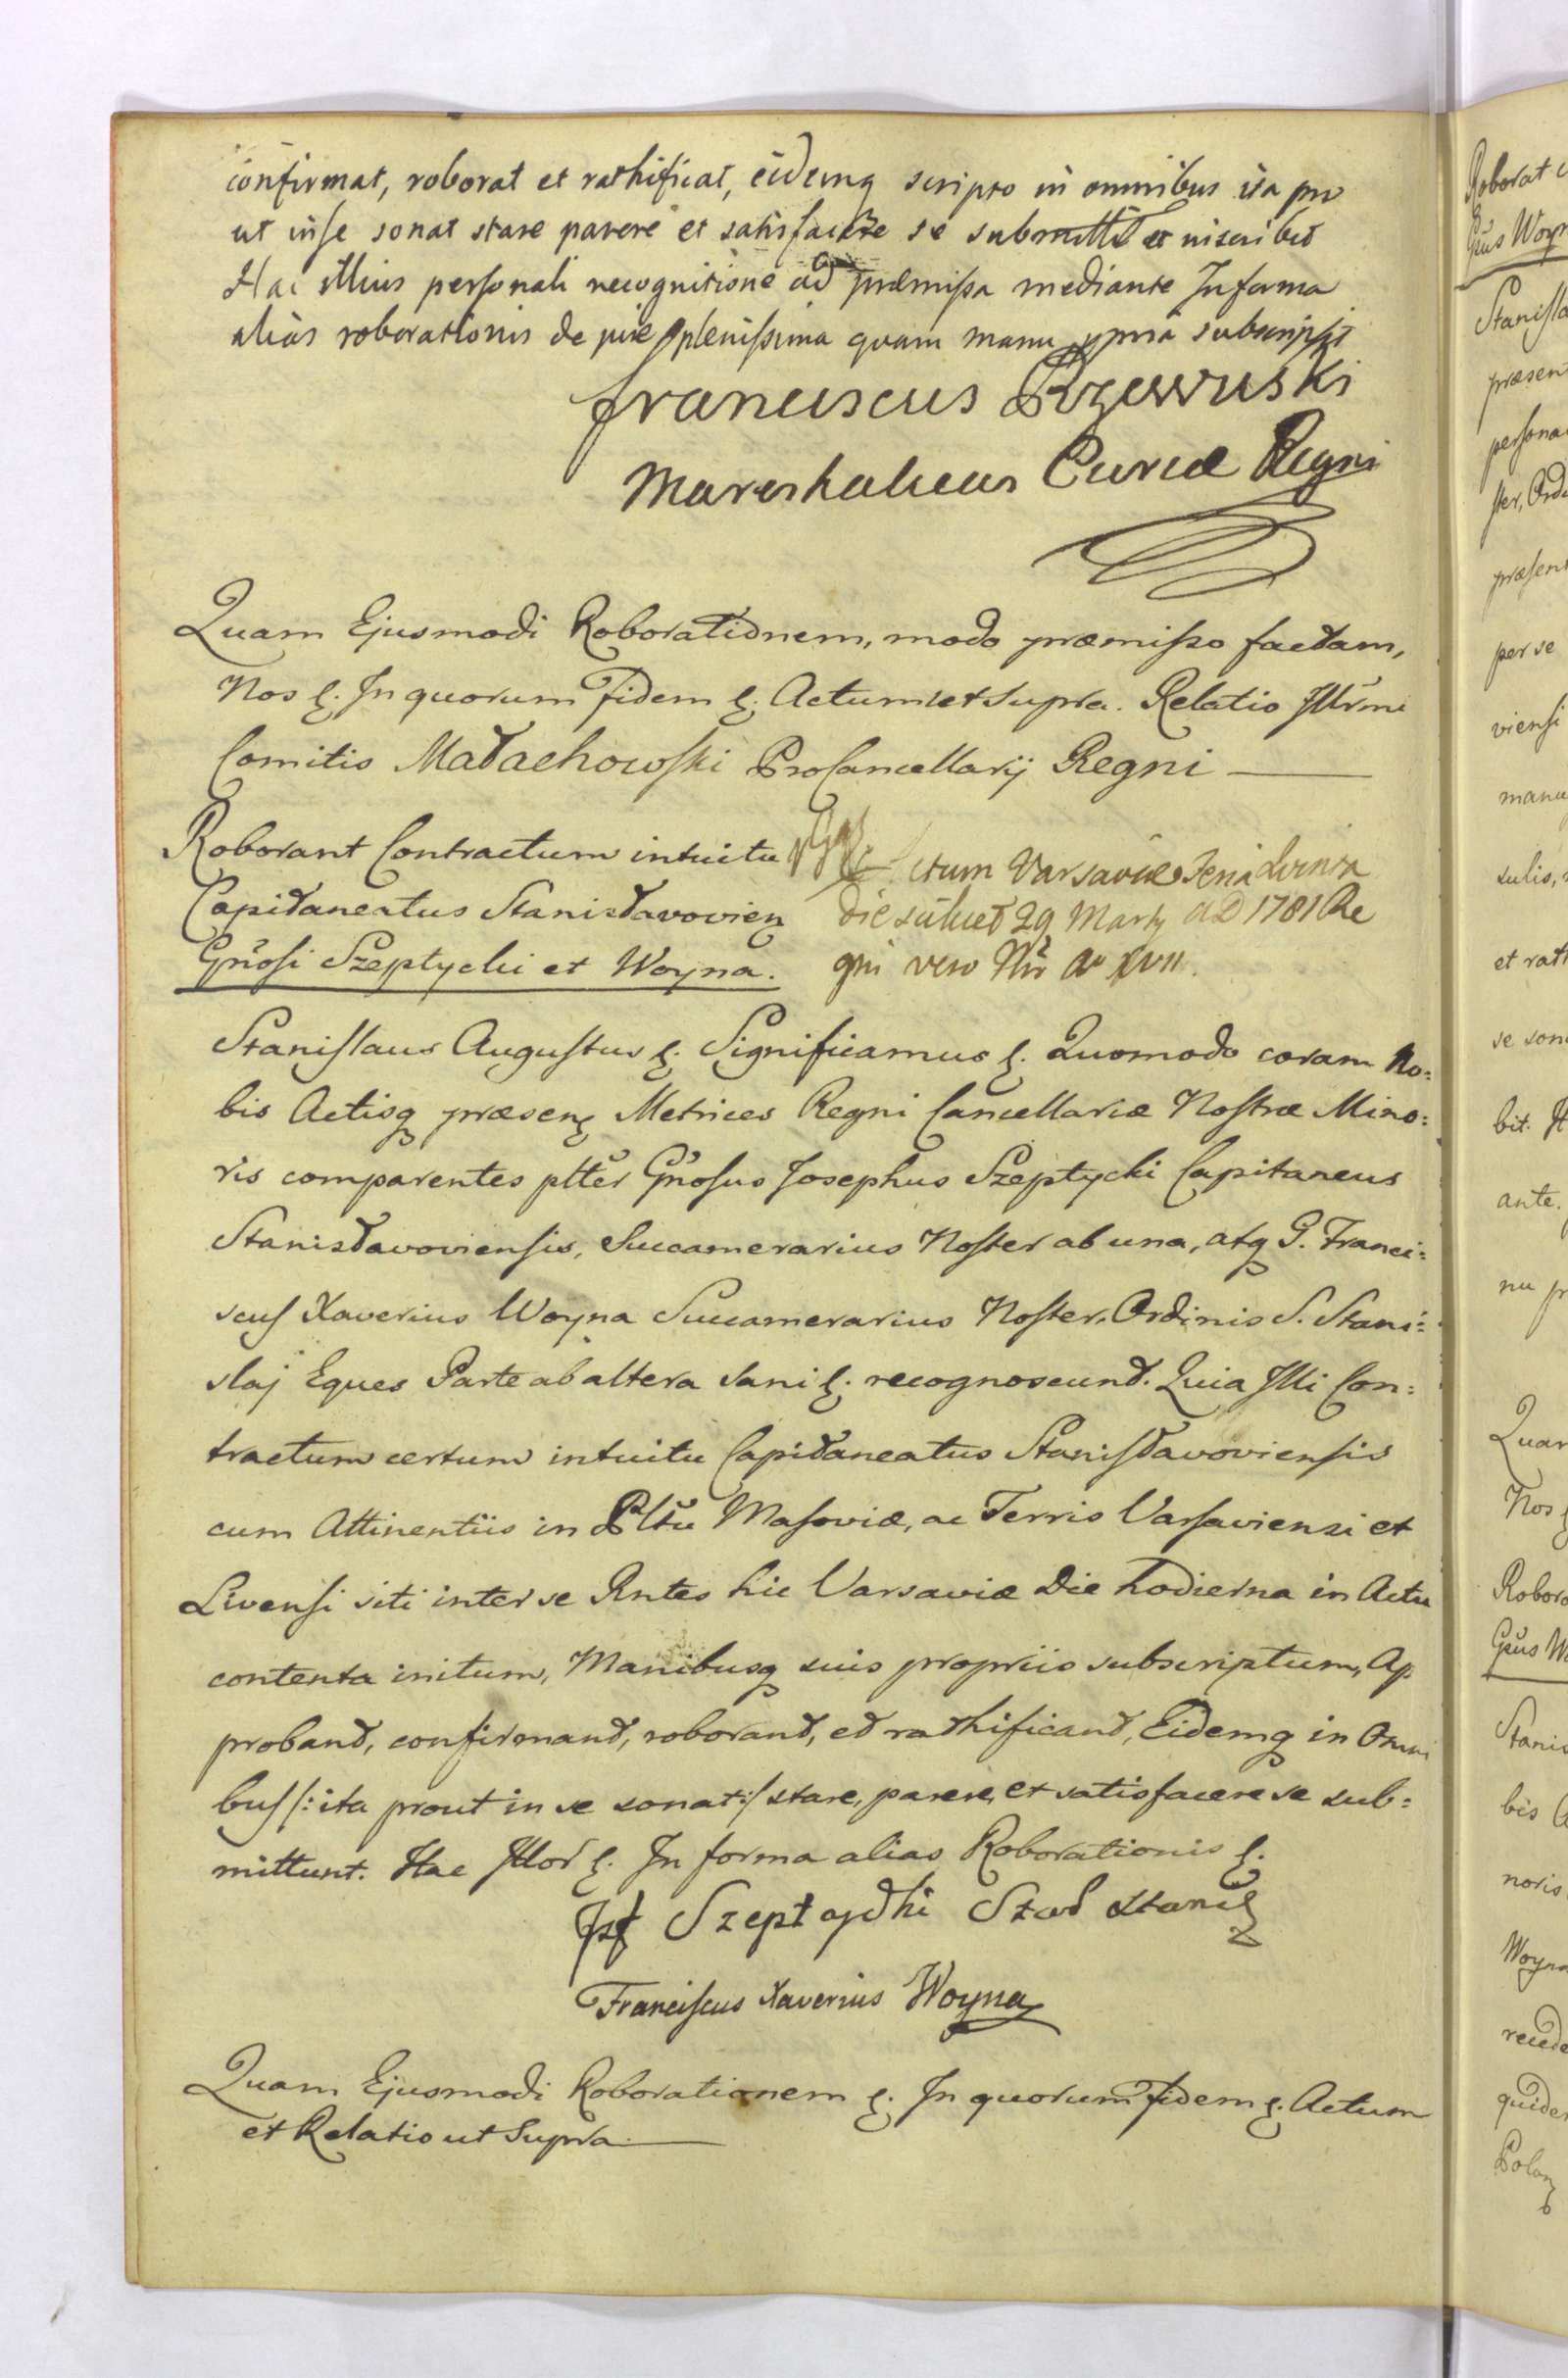 confirmat, roborat et rathificat, eidemq scripto in omnibus ita pro
ut inse sonat stare parere et satisfacere se submittit et inscribit
Hac illius personali recognitione ad præmissa mediante In forma
alias roborationis de jure plenissima quam manu ppria subscripsit
Franciscus Rzewuski
Mareshalcus Curiæ Regni
Quam Ejusmodi Roborationem, modo præmisso factam,
Nos ę. In quorum Fidem ę. Actum ut supra. Relatio Illr̃mi
Comitis Małachowski ProCancellarij Regni
Roborant Contractum intuitu
Capitaneatus Stanisławovień
Gñosi Szeptycki et Woyna.
ctum Varsaviæ Feria Quinta
die 29 Martij AD 1781 Re
gni vero Nr̃i Ao XVII.
Stanislaus Augustus ę. Significamus ę. Quomodo coram No:
bis Actisq præsenę Metrices Regni Cancellariæ Nostræ Mino:
ris comparentes pltẽr Gñosus Josephus Szeptycki Capitaneus
Stanisławoviensis, Succamerarius Noster ab una, atq G. Franci:
scus Xaverius Woyna Succamerarius Noster, Ordinis S. Stani:
slaj Eques Parte ab altera Sani ę. recognoscunt. Quia Illi Con:
tractum certum intuitu Capitaneatus Stanisławoviensis
cum Attinentiis in Pltũ Masoviæ, ac Terris Varsaviensi et
Livensi siti inter se Rntes hic Varsaviæ Die hodierna in Actu
contenta initum, Manibusq suis propriis subscriptum, Ap
probant, confirmant, roborant, et rathificant, Eidemq in Omni
bus /: ita prout in se sonat :/ stare, parere, et satisfacere se sub:
mittunt. Hac Illor ę. In forma alias Roborationis ę.
Jzf Szeptycki Stani
Franciscus Xaverius Woyna
Quam Ejusmodi Roborationem ę. In quorum Fidem ę. Actum
et Relatio ut Supra